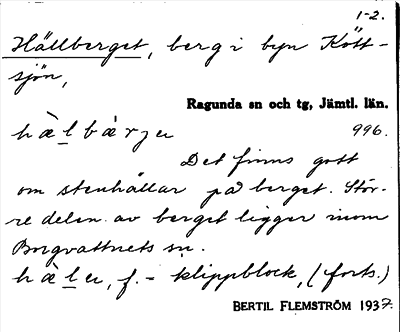 1-2.
Hällberget, berg i byn Kött-
sjön,
Ragunda sn och tg, Jämtl. län.
hàlbàrjeu 996.
Det finns gott
om stenhällar på berget. Stör-
re delen av berget ligger inom
Borgvattnets sn.
hàleu, f. - klippblock, (forts.)
BERTIL FLEMSTRÖM 1937.